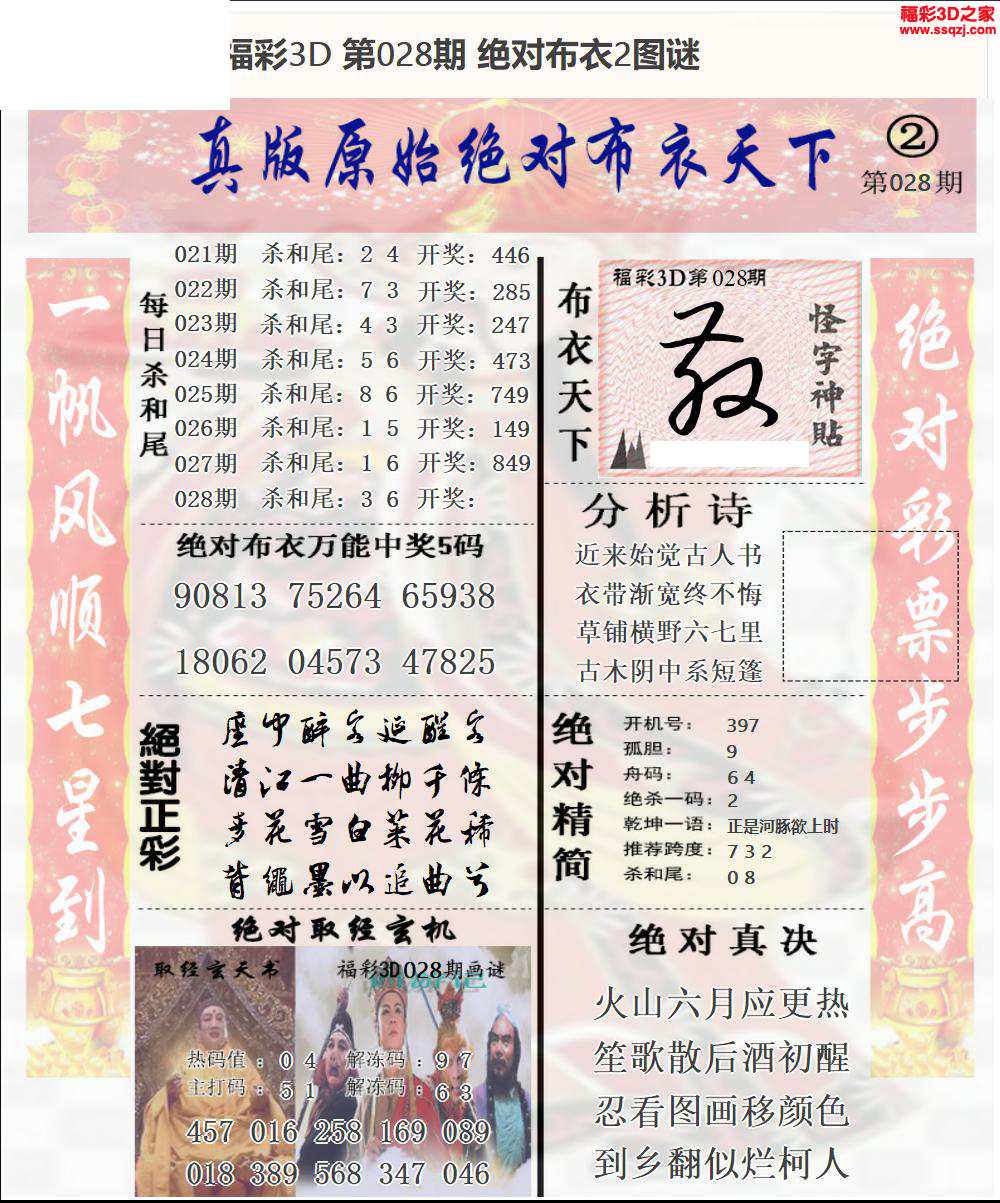 福彩3D之家
www.ssqzj.com
福彩3D 第028期 绝对布衣2图谜
真版原始绝对布衣天下
②
第028期
一帆风顺七星到
每日杀和尾
021期 杀和尾：2 4 开奖：446
022期 杀和尾：7 3 开奖：285
023期 杀和尾：4 3 开奖：247
024期 杀和尾：5 6 开奖：473
025期 杀和尾：8 6 开奖：749
026期 杀和尾：1 5 开奖：149
027期 杀和尾：1 6 开奖：849
028期 杀和尾：3 6 开奖：
绝对布衣万能中奖5码
90813 75264 65938
18062 04573 47825
絕對正彩
座中醉客延醒客
清江一曲柳千条
麦花雪白菜花稀
背繩墨以追曲兮
绝对取经玄机
取经玄天书
福彩3D028期画谜
热码值：0 4 解冻码：9 7
主打码：5 1 解冻码：6 3
457 016 258 169 089
018 389 568 347 046
布衣天下
福彩3D第028期
怪字神貼
分析诗
近来始觉古人书
衣带渐宽终不悔
草铺横野六七里
古木阴中系短篷
绝对精简
开机号：397
孤胆：9
舟码：6 4
绝杀一码：2
乾坤一语：正是河豚欲上时
推荐跨度：7 3 2
杀和尾：0 8
绝对真决
火山六月应更热
笙歌散后酒初醒
忍看图画移颜色
到乡翻似烂柯人
绝对彩票步步高